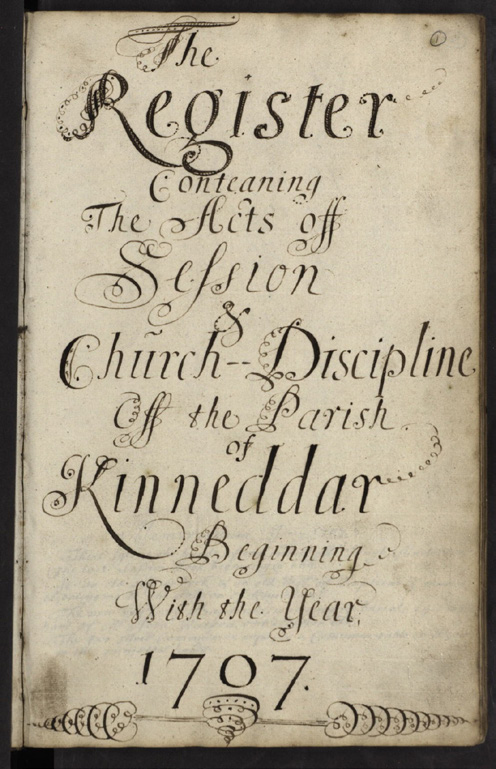 The
Register
Conteaning
The Acts off
Seſsion
&
Church--Discipline
Off the Parish
of
Kinneddar
Beginning
With the Year
1707.